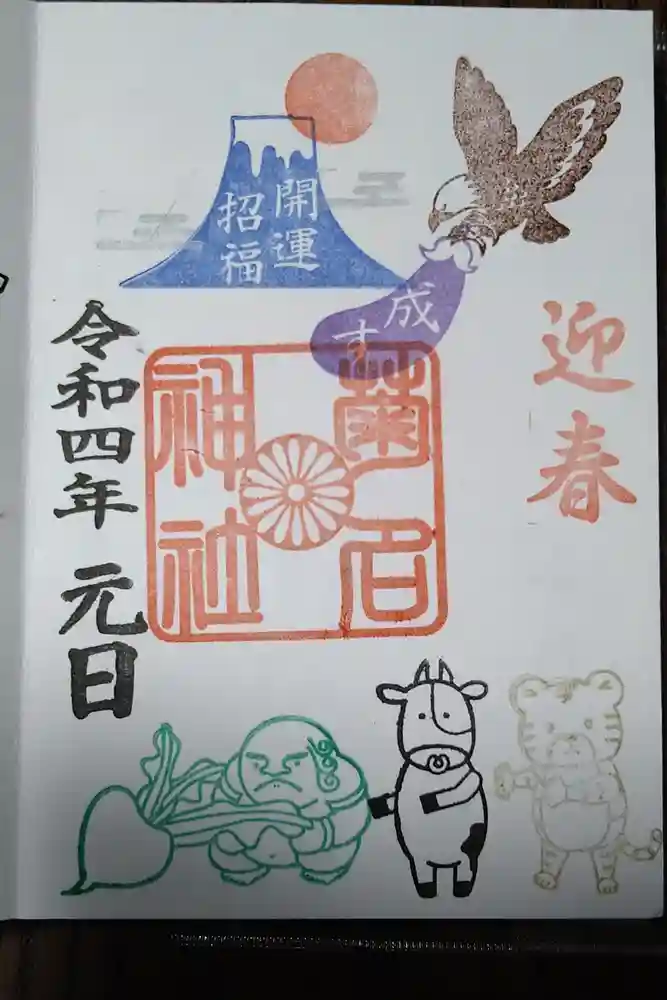 開運
招福
成す
迎春
菊名
神社
令和四年 元日